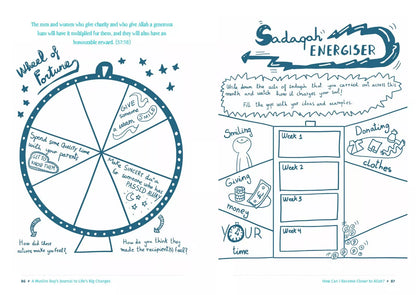 The men and women who give charity and who give Allah a generous
loan will have it multiplied for them, and they will also have an
honourable reward. (57:18)
Wheel of
Fortune
GIVE
someone
a WARM
SMILE
Spend some quality time
with your parents
GET TO
KNOW THEM
Make SINCERE du'a
for someone who has
PASSED AWAY
How did these
actions make you feel?
How do you think they
made the recipient(s) feel?
86 • A Muslim Boy's Journal to Life's Big Changes
Sadaqah
ENERGISER
Write down the acts of sadaqah that you carried out across this
month and watch how it charges your soul!
Fill the gap with your ideas and examples.
Smiling
Giving
money
YOUR
time
Week 1
Week 2
Week 3
Week 4
Donating
clothes
How Can I Become Closer to Allah? • 87